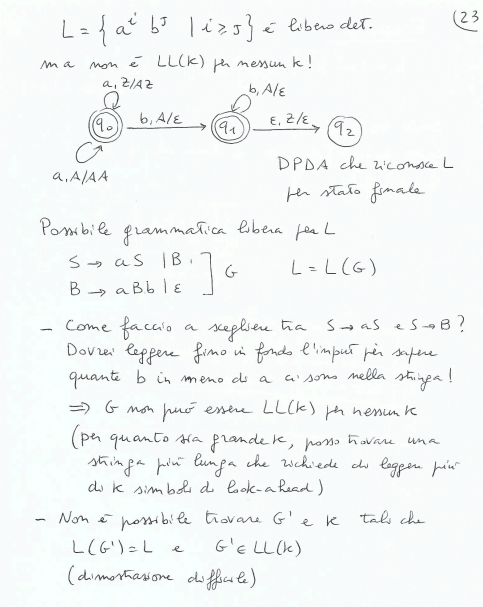 (23
L = { aⁱ bᴶ | i ≥ J } è libero det.
ma non è LL(k) per nessun k!
a, Z/AZ
b, A/ε
q₀ b, A/ε q₁ ε, Z/ε q₂
a, A/AA
DPDA che riconosce L
per stato finale
Possibile grammatica libera per L
S → aS | B
B → aBb | ε ] G L = L(G)
- Come faccio a scegliere tra S → aS e S → B ?
Dovrei leggere fino in fondo l'input per sapere
quante b in meno di a ci sono nella stringa!
⇒ G non può essere LL(k) per nessun k
(per quanto sia grande k, posso trovare una
stringa più lunga che richiede di leggere più
di k simboli di look-ahead)
- Non è possibile trovare G' e k tali che
L(G') = L e G' ∈ LL(k)
(dimostrazione difficile)